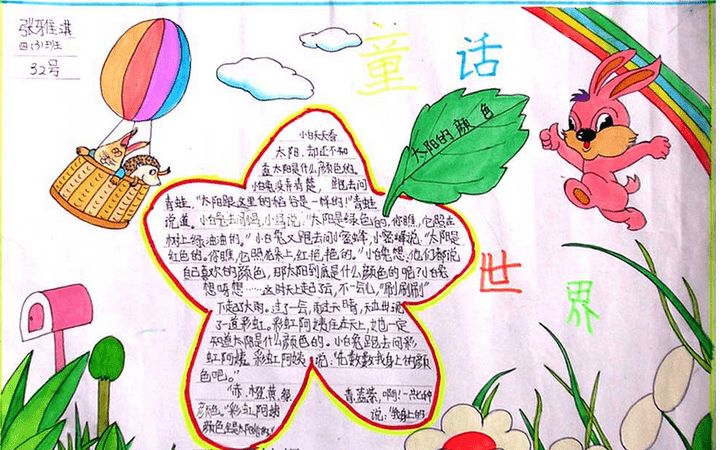 张雅淇
四(3)班
32号
童话
世界
太阳的颜色
小白天天看
太阳,却还不知
道太阳是什么颜色的。
小白兔没弄清楚,跑去问
青蛙,"太阳跟这里的稻谷是一样的!"青蛙
说道。小白兔去问小鸟,小鸟说:"太阳是绿色的,你瞧,它照在
树上绿油油的。"小白兔又跑去问小蜜蜂,小蜜蜂说:"太阳是
红色的。你瞧,它照花朵上,红艳艳的。"小白兔想,他们都说
自己喜欢的颜色,那太阳到底是什么颜色的呢?小白兔
想呀想……这时天上起了云,不一会儿,"刷刷刷"
下起了大雨。过了一会,雨过天晴,天边出现
了一道彩虹。彩虹阿姨住在天上,她一定
知道太阳是什么颜色的。小白兔跑去问彩
虹阿姨。彩虹阿姨说:"先数数我身上的颜
色吧。"
"赤、橙、黄、绿、
青、蓝、紫,啊!一共七种
颜色。"彩虹阿姨
说:"我身上的
颜色